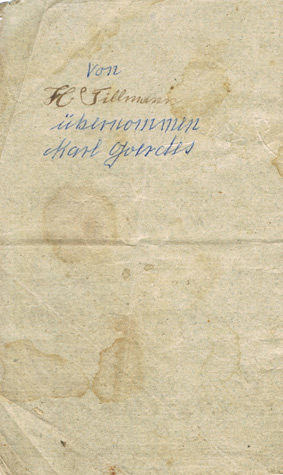 von
H. Tillmann
übernommen
Karl Goerdes